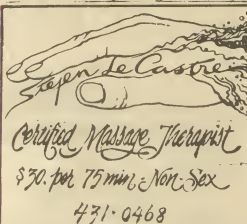 Stejen Le Castre
Certified Massage Therapist
$30. per 75 min - Non-Sex
431-0468